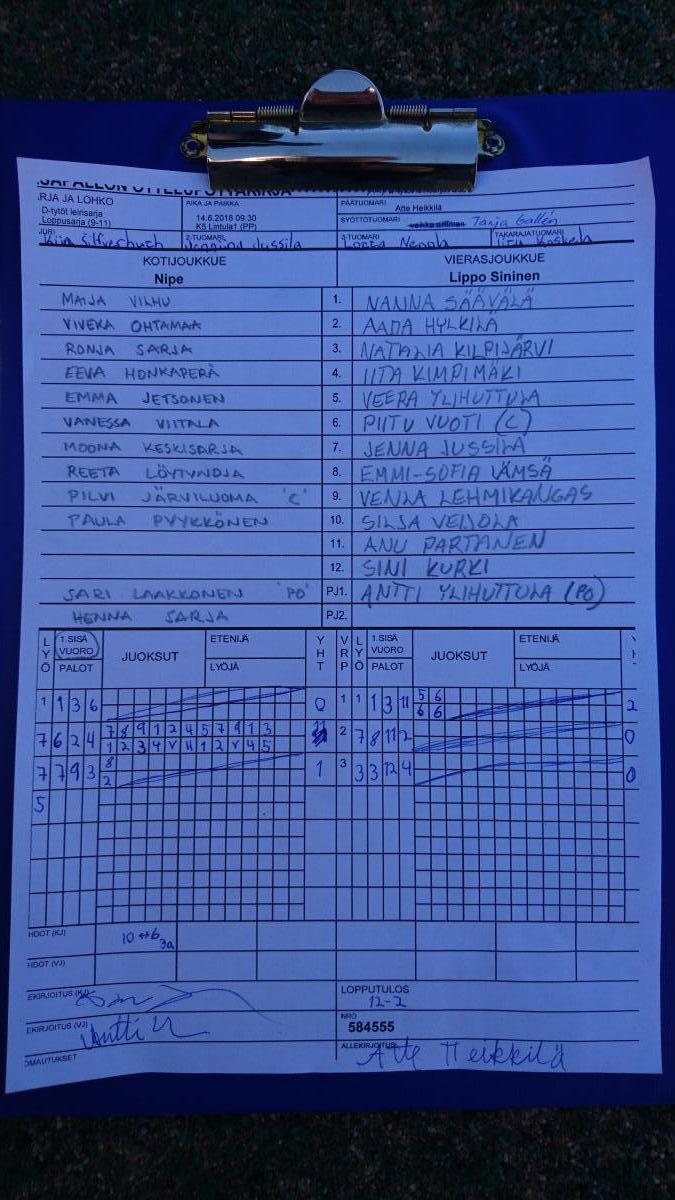 SARJA JA LOHKO
D-tytöt leirisarja
Loppusarja (9-11)
AIKA JA PAIKKA
14.6.2018 09:30
K5 Lintula1 (PP)
PÄÄTUOMARI
Atte Heikkilä
SYÖTTÖTUOMARI
Tanja Gallén
JURI
2-TUOMARI
Jussila
3-TUOMARI
TAKARAJATUOMARI
KOTIJOUKKUE
Nipe
VIERASJOUKKUE
Lippo Sininen
MAIJA VILHU 1. NANNA SÄÄVÄLÄ
VIVEKA OHTAMAA 2. AADA HYLKILÄ
RONJA SARJA 3. NATALIA KILPIJÄRVI
EEVA HONKAPERÄ 4. IITA KIMPIMÄKI
EMMA JETSONEN 5. VEERA YLIHUTTULA
VANESSA VIITALA 6. PIITU VUOTI (C)
MOONA KESKISARJA 7. JENNA JUSSILA
REETA LÖYTYNOJA 8. EMMI-SOFIA LÄMSÄ
PILVI JÄRVILUOMA 'C' 9. VENLA LEHMIKANGAS
PAULA PYYKKÖNEN 10. SILJA VEIJOLA
11. ANU PARTANEN
12. SINI KURKI
SARI LAAKKONEN 'PO' PJ1. ANTTI YLIHUTTULA (PO)
HENNA SARJA PJ2.
LYÖ 1.SISÄ VUORO PALOT JUOKSUT ETENIJÄ LYÖJÄ YHT VRP LYÖ 1.SISÄ VUORO PALOT JUOKSUT ETENIJÄ LYÖJÄ
1 1 3 6 0 1 1 1 3 11 5 6 2
6 6
7 6 2 4 7 8 9 1 2 4 5 7 9 1 3 11 2 7 8 11 2 0
1 2 3 4 V 4 1 2 V 4 5
7 7 9 3 8 1 3 3 3 12 4 0
2
5
HDOT (KJ) 10 ↔ 6 3a
HDOT (VJ)
EKIRJOITUS (KJ)
LOPPUTULOS
12-2
EKIRJOITUS (VJ) Antti
NRO
584555
OMAUTUKSET
ALLEKIRJOITUS
Atte Heikkilä